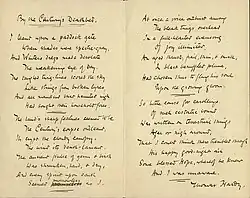 By the Century's Deathbed.
I leant upon a coppice gate
When Frost was spectre-gray,
And Winter's dregs made desolate
The weakening eye of day.
The tangled bine-stems scored the sky
Like strings from broken lyres
And all mankind that haunted nigh
Had sought their household fires.
The land's sharp features seem'd to be
The Century's corpse outleant,
The wind its death-lament.
The ancient pulse of germ & birth
Was shrunken, hard, & dry,
And every spirit upon earth
Seem'd as I.
At once a voice outburst among
The bleak twigs overhead
In a full-hearted evensong
Of joy illimited
An aged thrush, frail, gaunt, & small,
In blast-beruffled plume,
Had chosen thus to fling his soul
Upon the growing gloom.
So little cause for carolings
Of such ecstatic sound
Was written on terrestrial things
Afar or nigh around,
That I could think there trembled through
His happy good-night air
Some blessed Hope, whereof he knew
And I was unaware.
Thomas Hardy.